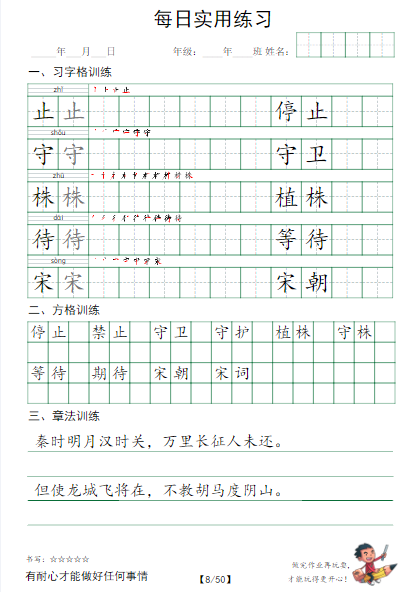 每日实用练习
年 月 日 年级： 年 班 姓名：
一、习字格训练
zhǐ
止 止 停 止
shǒu
守 守 守 卫
zhū
株 株 植 株
dài
待 待 等 待
sòng
宋 宋 宋 朝
二、方格训练
停止 禁止 守卫 守护 植株 守株
等待 期待 宋朝 宋词
三、章法训练
秦时明月汉时关，万里长征人未还。
但使龙城飞将在，不教胡马度阴山。
书写：☆☆☆☆☆
做完作业再玩耍，
有耐心才能做好任何事情 【8/50】 才能玩得更开心！